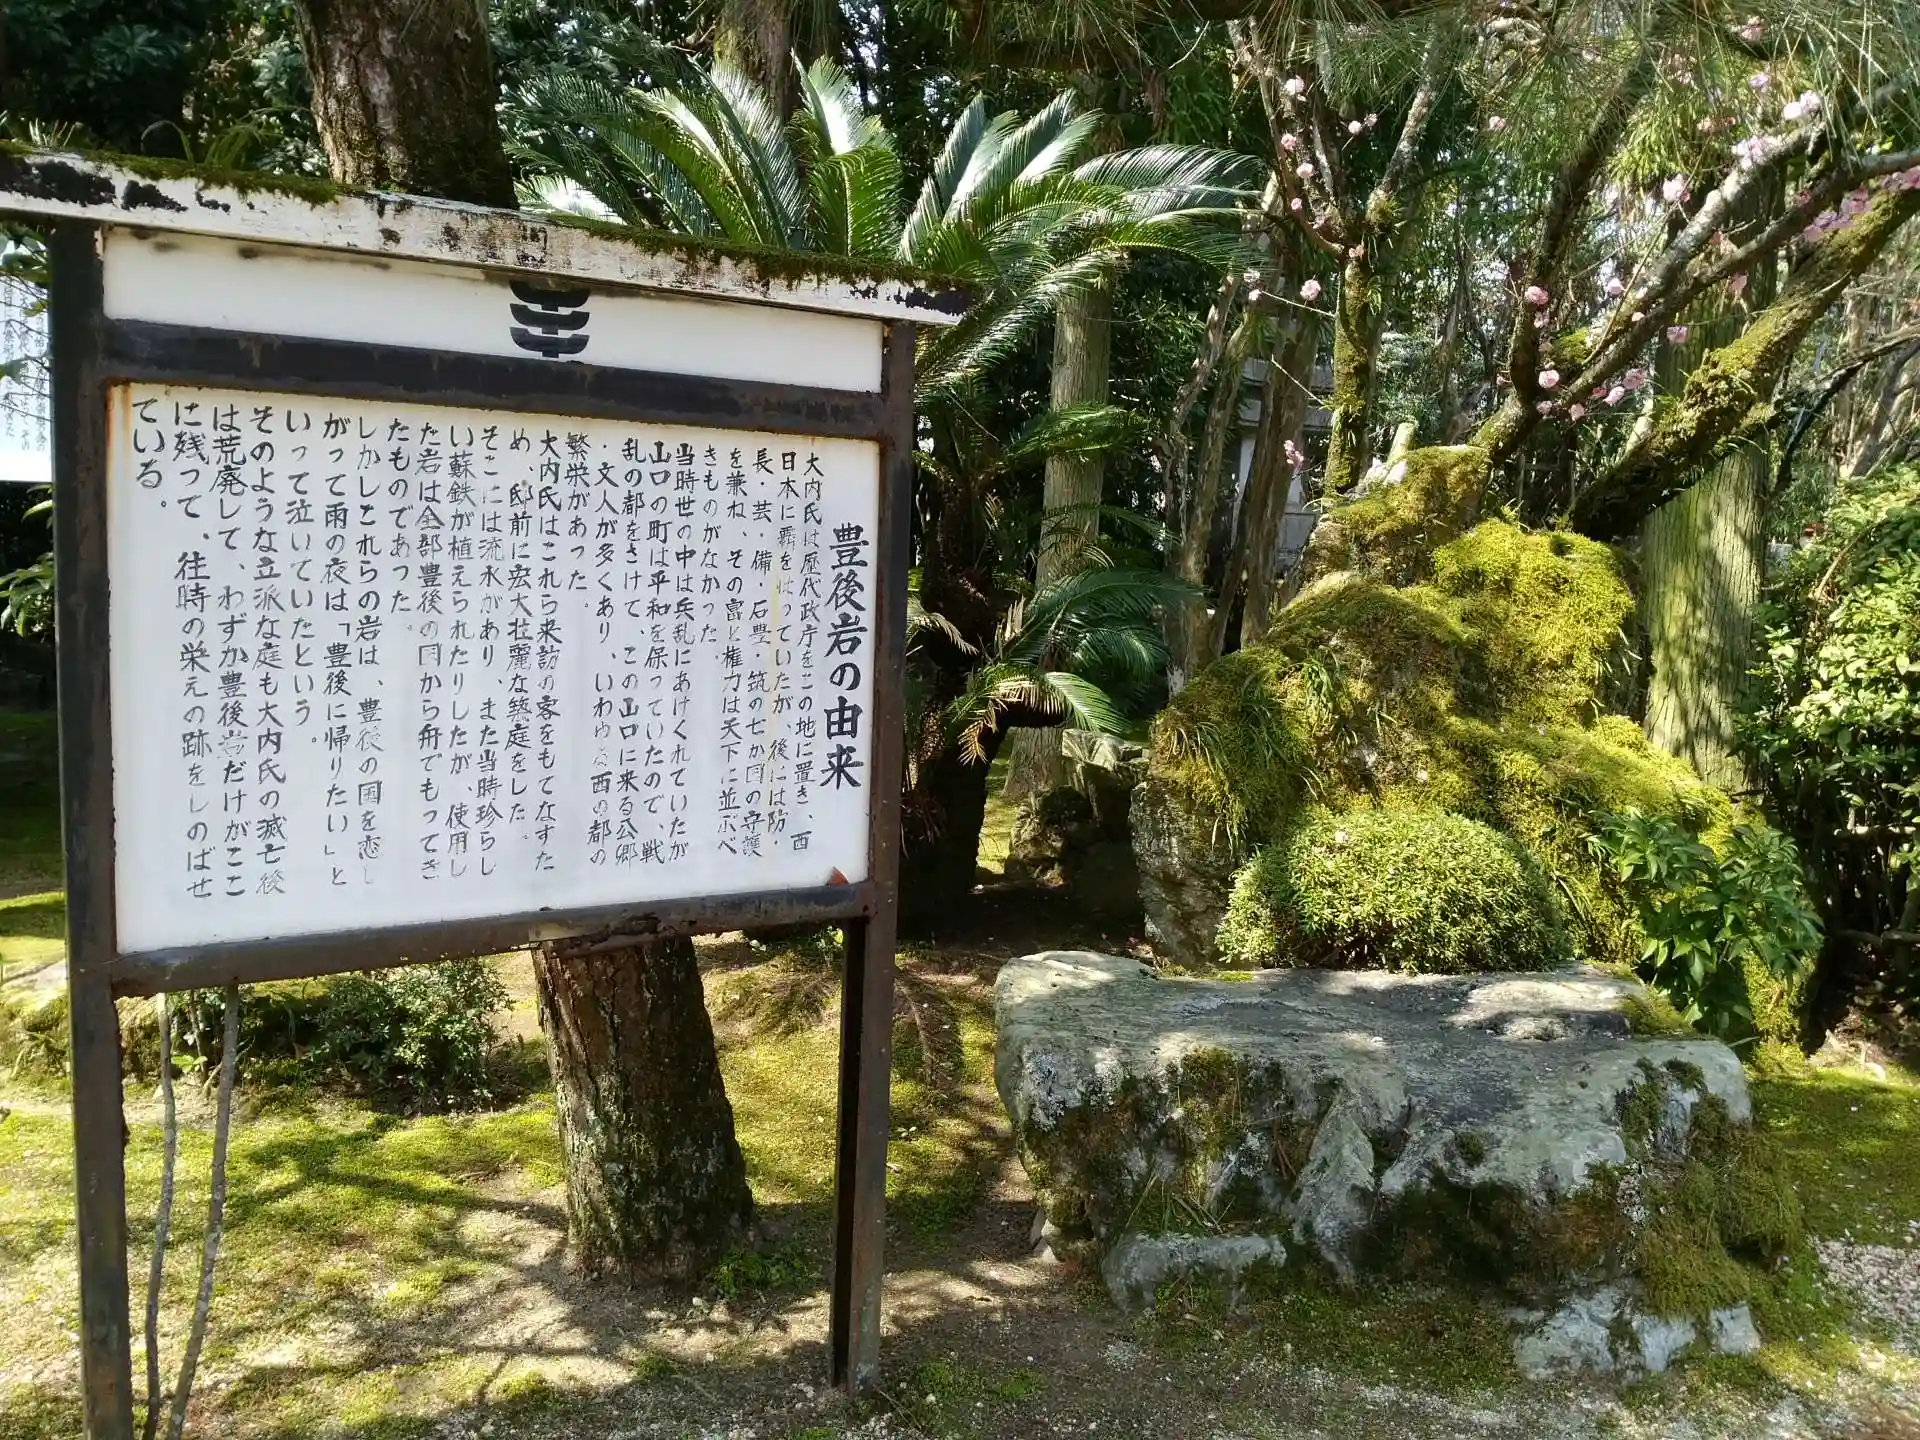 豊後岩の由来
大内氏は歴代政庁をこの地に置き、西
日本に覇をはっていたが、後には防・
長・芸・備・石・豊・筑の七か国の守護
を兼ね、その富と権力は天下に並ぶべ
きものがなかった。
当時世の中は兵乱にあけくれていたが
山口の町は平和を保っていたので、戦
乱の都をさけて、この山口に来る公郷
・文人が多くあり、いわゆる西の都の
繁栄があった。
大内氏はこれら来訪の客をもてなすた
め、邸前に宏大壮麗な築庭をした。
そこには流水があり、また当時珍らし
い蘇鉄が植えられたりしたが、使用し
た岩は全部豊後の国から舟でもってき
たものであった。
しかしこれらの岩は、豊後の国を恋し
がって雨の夜は「豊後に帰りたい」と
いって泣いていたという。
そのような立派な庭も大内氏の滅亡後
は荒廃して、わずか豊後岩だけがここ
に残って、往時の栄えの跡をしのばせ
ている。